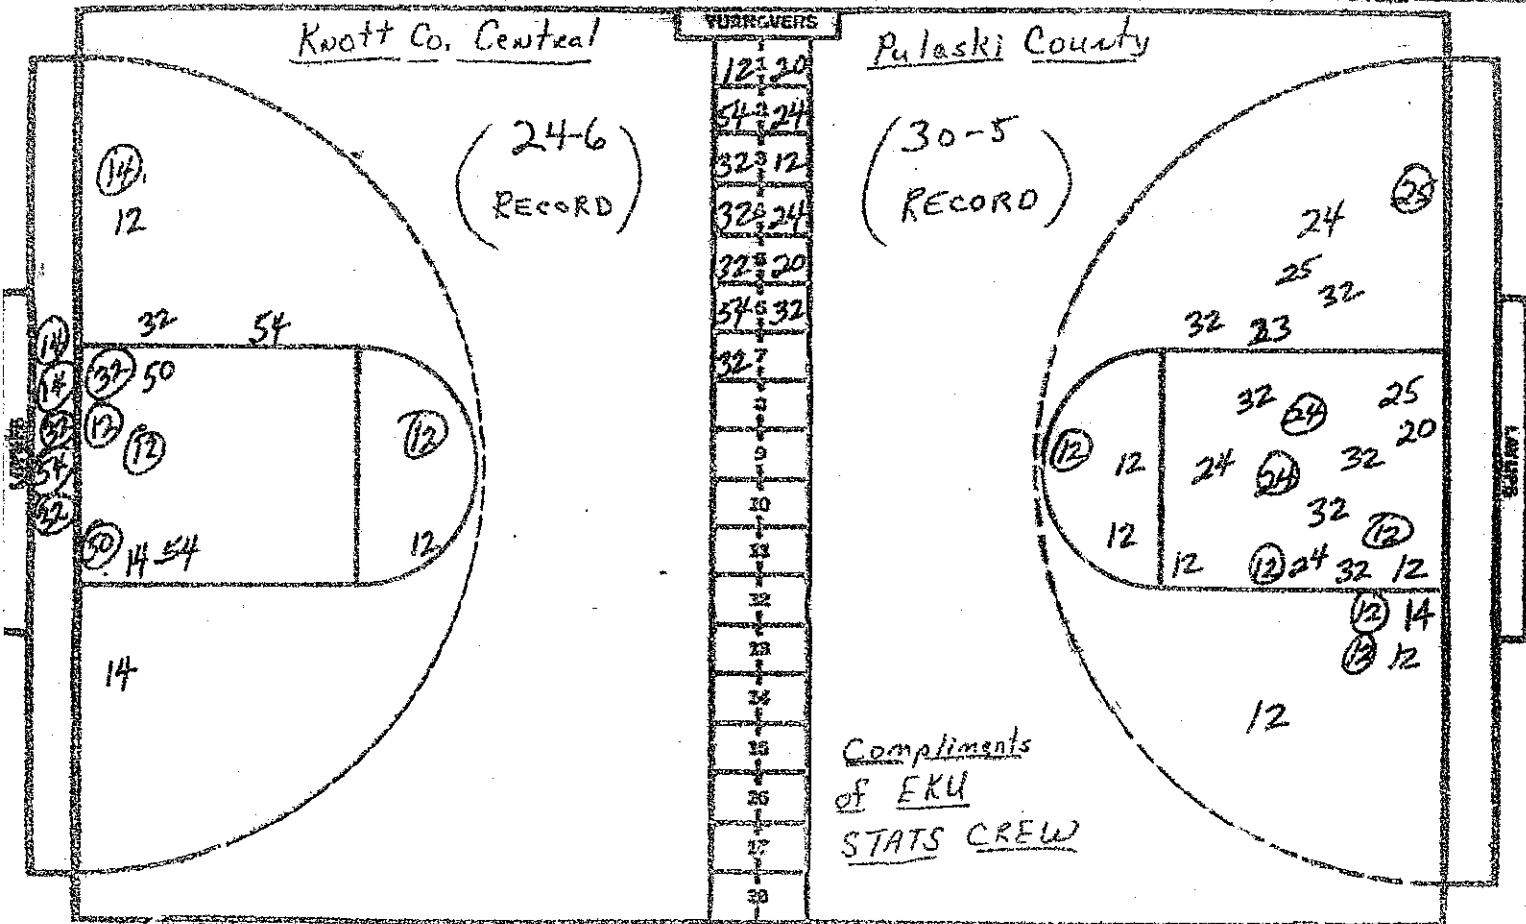 TURNOVERS
Knott Co. Central
Pulaski County
(24-6
RECORD)
(30-5
RECORD)
12 1 20
54 2 24
32 3 12
32 4 24
32 5 20
54 6 32
32 7
8
9
10
11
12
13
14
15
16
17
18
14
12
32 54
14
14
32
54
32
32 50
12
12
12
50 14 54
12
14
25
24
25
32
32 23
32 24 25
20
12 12 24 24 32
32 12
12
12 12 24 32 12
12 14
12 12
12
LAYUPS
Compliments
of EKU
STATS CREW